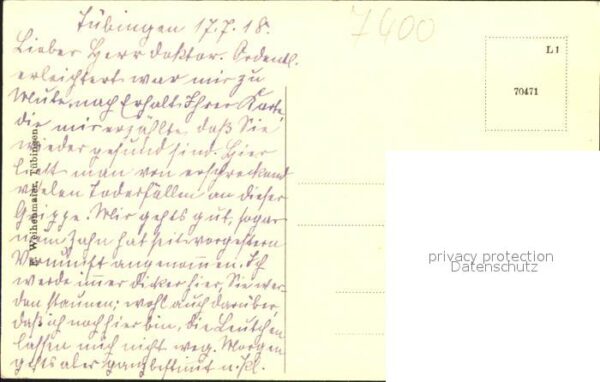 Tübingen 17.7.18.
Lieber Herr Doktor. Ordentl.
erleichtert war mir zu
Mute, nach Erhalt Ihrer Karte,
die mir erzählte, daß Sie
wieder gesund sind. Hier
liest man von erschreckend
vielen Todesfällen an dieser
Grippe. Mir gehts gut, sogar
mein Zahn hat seit vorgestern
Vernunft angenommen. Ich
werde immer dicker hier, Sie wer-
den staunen; wohl auch darüber,
daß ich noch hier bin, die Leutchen
lassen mich nicht weg. Morgen
gehts aber ganz bestimmt n.
7400
L 1
70471
Weihenmaier, Tübingen
privacy protection
Datenschutz